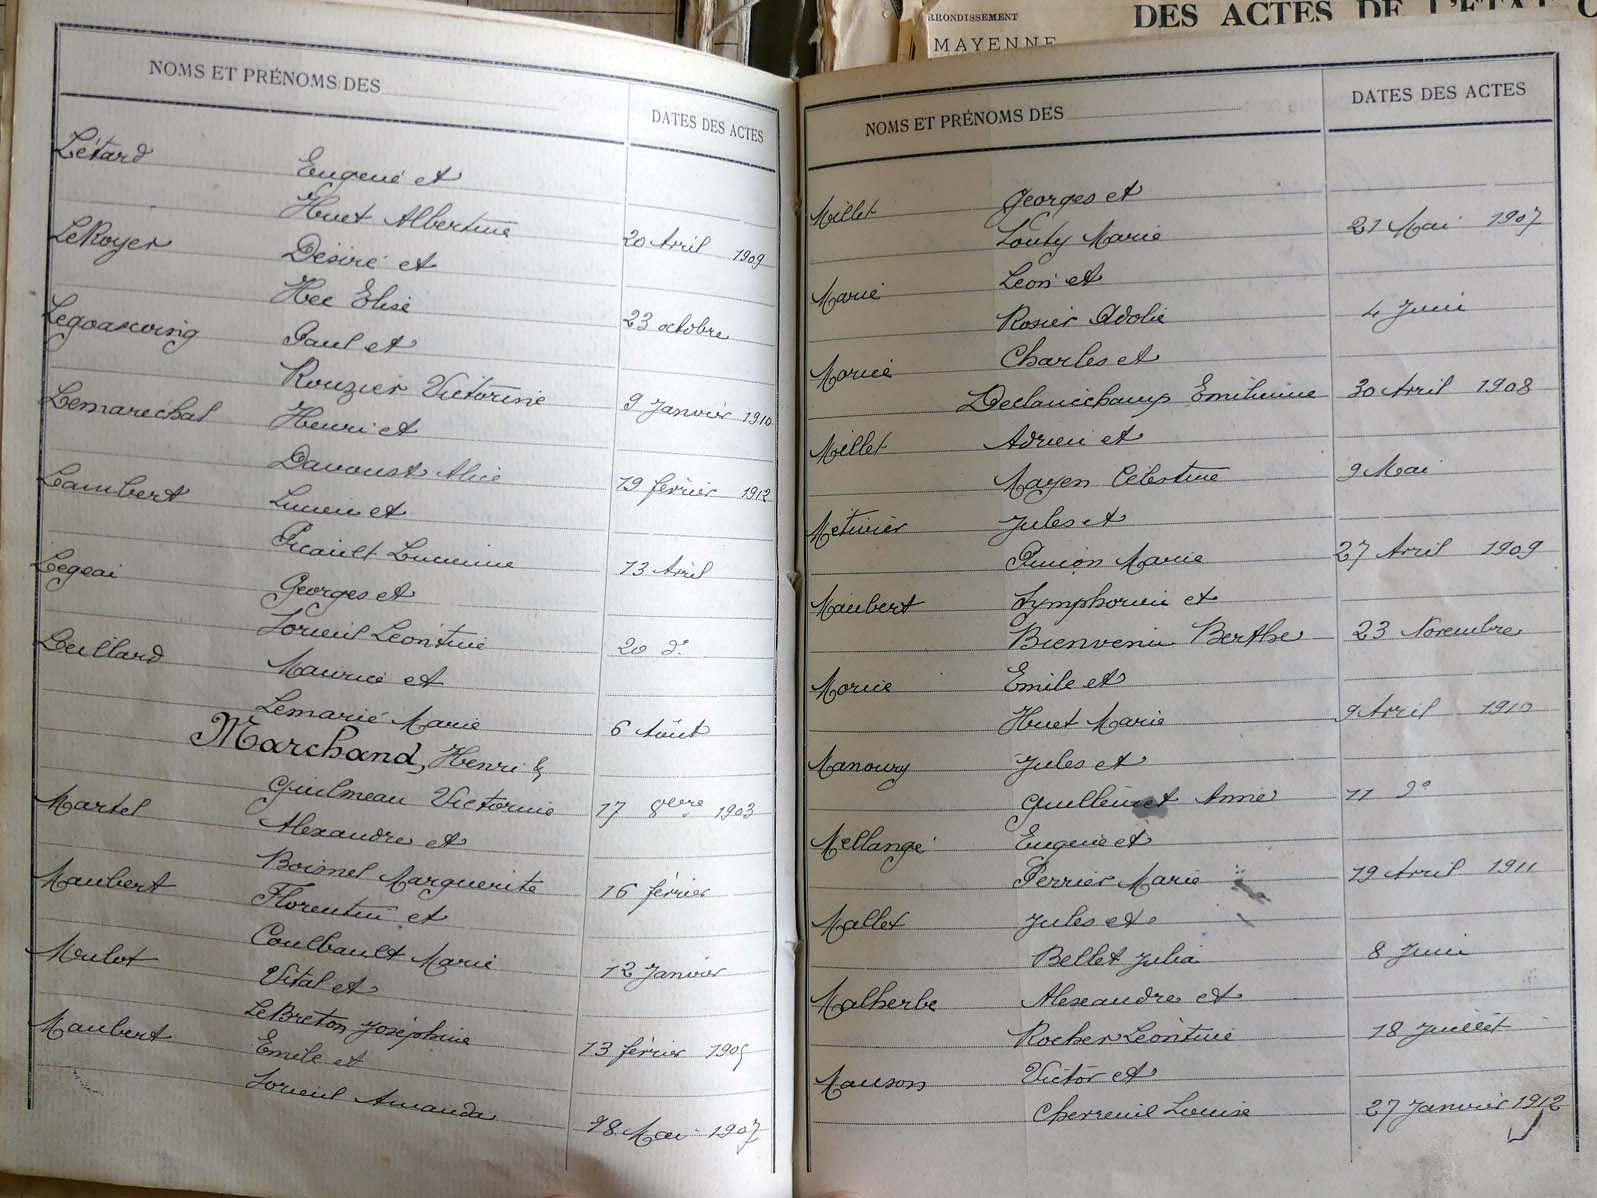 RRONDISSEMENT
MAYENNE
DES ACTES DE L'ETAT C
NOMS ET PRÉNOMS DES
DATES DES ACTES
Létard Eugene et
Huet Albertine 20 Avril 1909
LeRoyer Désiré et
Hec Elise 23 octobre
Paul et
Rouzier Victorine 9 Janvier 1910
Lemarechal Henri et
Davoust Alice 19 février 1912
Lambert Lucien et
Picault Lucienne 13 Avril
Legeai Georges et
Léontine 20 do
Leillard Maurice et
Lemarié Marie 6 Août
Marchand, Henri &
Guilmeau Victorine 17 8bre 1903
Martel Alexandre et
Boisnel Marguerite 16 février
Maubert Florentin et
Coulbault Marie 12 Janvier
Mulot Vital et
LeBreton Joséphine 13 février 1905
Maubert Emile et
Amanda 18 Mai 1907
NOMS ET PRÉNOMS DES
DATES DES ACTES
Millet Georges et
Louty Marie 21 Mai 1907
Marie Léon et
Rosier Odolie 4 Juin
Morice Charles et
Emilienne 30 Avril 1908
Millet Adrien et
Mayen Célestine 9 Mai
Métivier Jules et
Marie 27 Avril 1909
Maubert Symphorien et
Bienvenu Berthe 23 Novembre
Morice Emile et
Huet Marie 9 Avril 1910
Manoury Jules et
Anne 11 do
Mellangé Eugene et
Perrier Marie 19 Avril 1911
Mallet Jules et
Bellet Julia 8 Juin
Malherbe Alexandre et
Rocher Léontine 18 Juillet
Mauson Victor et
Chereuil Louise 27 Janvier 1912